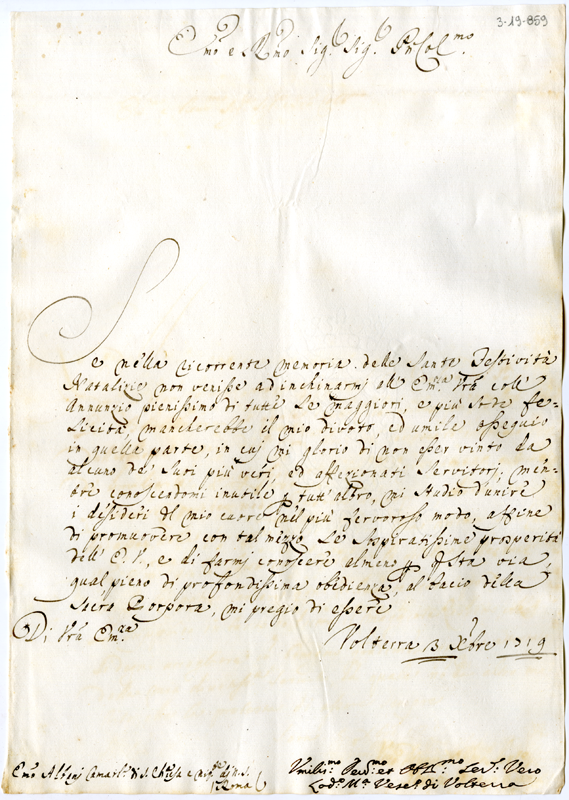 3-19-859
Emo e Rmo Sig.r Sig.r Pn Colmo
Se nella ricorrente memoria delle Sante Festività
Natalizie non venisse ad inchinarmi all' Em.za Vra coll'
Annunzio pienissimo di tutte le maggiori, e più vere fe-
licità, mancherebbe il mio divoto, ed umile ossequio
in quella parte, in cui mi glorio di non esser vinto da
alcuno de' Suoi più veri, ed affezionati Servitori, men-
tre conoscendomi inutile p tutt' altro, mi studio d'unire
i desideri del mio cuore nel più fervoroso modo, affine
di promuovere con tal mezzo le sospiratissime prosperità
dell' E. V., e di farmi conoscere almeno p qsta via,
qual pieno di profondissima obidienza, al bacio della
Sacra Porpora, mi pregio di essere
Di Vra Em.za
Volterra 13 Xbre 1719
Emo Albani Camarl.o di S. Chiesa
Roma
Umiliss.mo Devmo et Obbl.mo Ser.re Vero
Lod.o M.a Vesc.o di Volterra